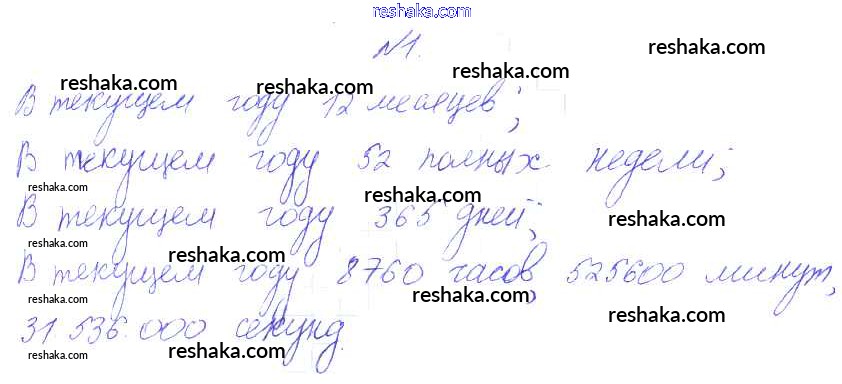 reshaka.com
№1.
reshaka.com reshaka.com reshaka.com reshaka.com
В текущем году 12 месяцев;
В текущем году 52 полных недели;
reshaka.com reshaka.com reshaka.com
В текущем году 365 дней;
reshaka.com reshaka.com
В текущем году 8760 часов, 525600 минут,
reshaka.com reshaka.com reshaka.com
31 536.000 секунд.
reshaka.com reshaka.com